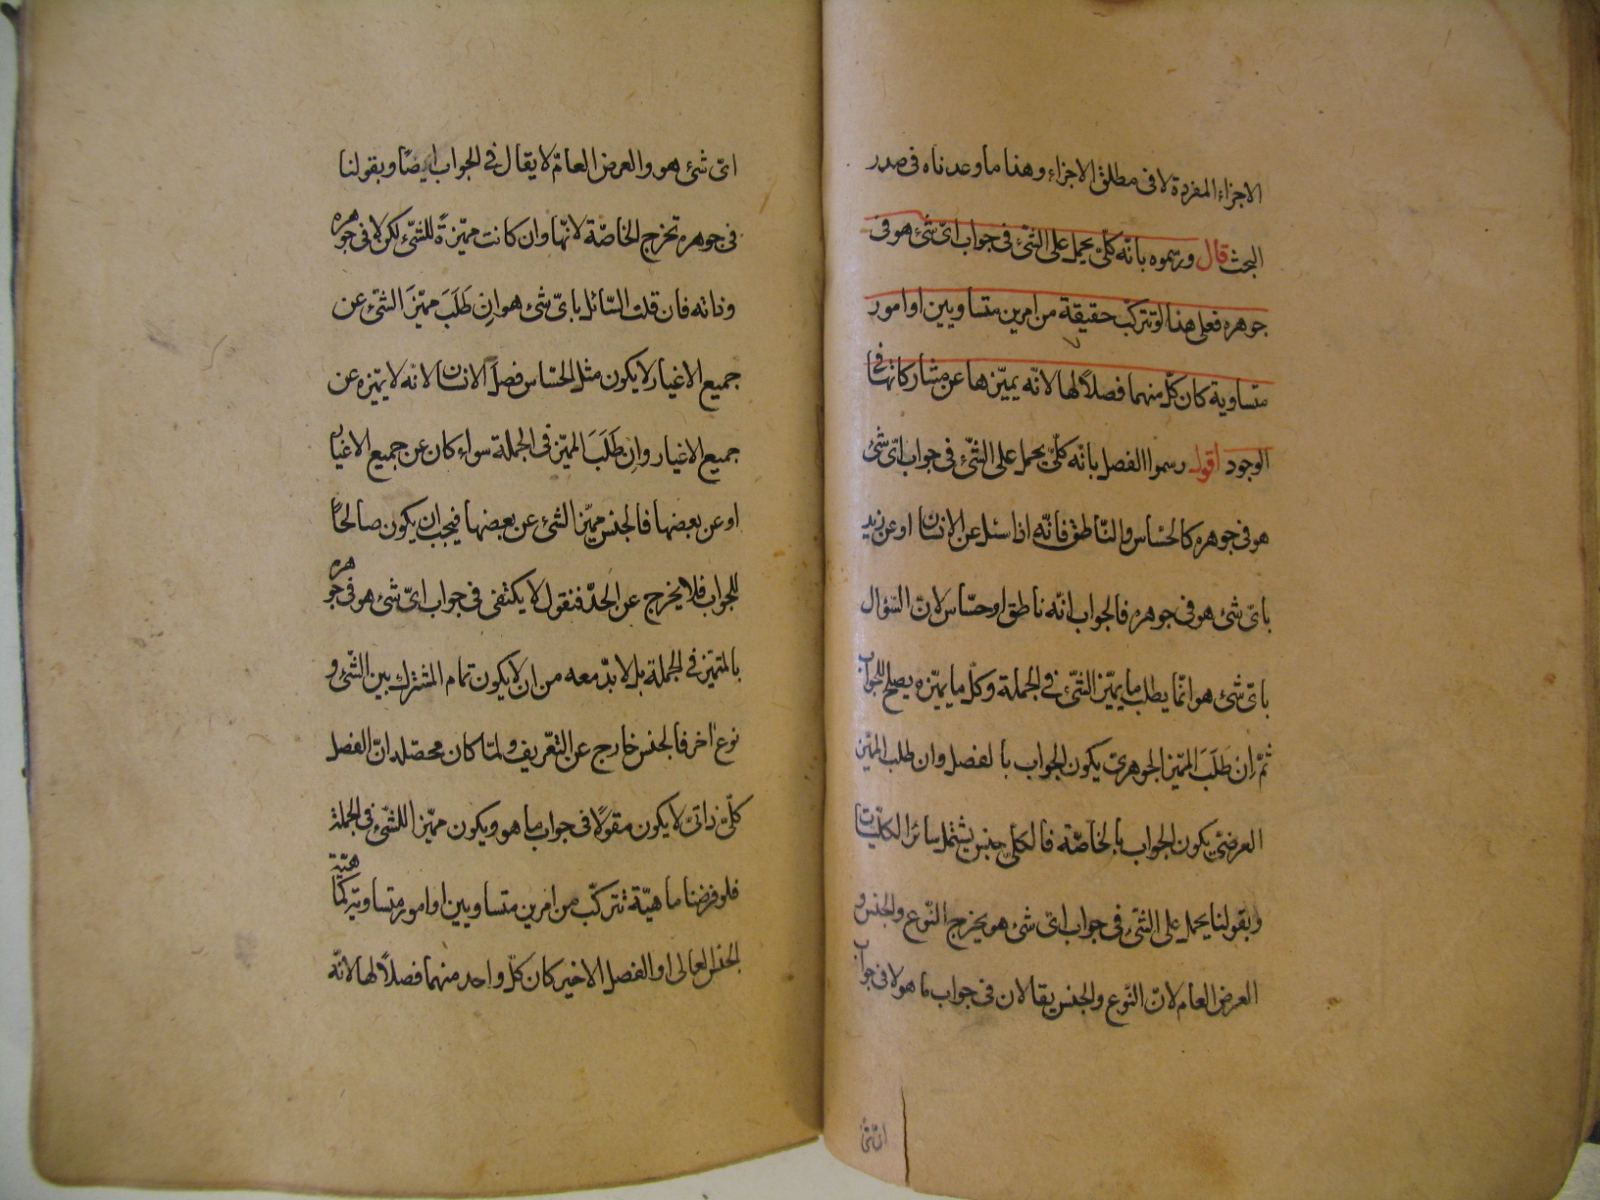 الاجزاء المفردة لا فى مطلق الاجزاء وهذا ما وعدناه فى صدر
البحث قال ورسموه بانّه كلّىّ يحمل على الشئ فى جواب اىّ شئ هو فى
جوهره فعلى هذا لو تتركّب حقيقة من امرين متساويين او امور
متساوية كان كلّ منهما فصلاً لها لانّه يميّزها عن مشاركاتها فى
الوجود اقول رسموا الفصل بانّه كلّىّ يحمل على الشّئ فى جواب اىّ شئ
هو فى جوهره كالحسّاس والنّاطق فانّه اذا سئل عن الانسان او عن زيد
باىّ شئ هو فى جوهره فالجواب انّه ناطق او حسّاس لانّ السّؤال
باىّ شئ هو انّما يطلب ما يميّز الشّئ فى الجملة وكلّ ما يميّزه يصلح للجواب
ثمّ اِن طَلَبَ المميّز الجوهرىّ يكون الجواب بالفصل وان طلب المميّز
العرضىّ يكون الجواب بالخاصّة فالكلّىّ جنس يشتمل سائر الكلّيّات
وبقولنا يحمل على الشّئ فى جواب اىّ شئ هو يخرج النّوع والجنس و
العرض العام لانّ النّوع والجنس يقالان فى جواب ما هو لا فى جواب
اىّ شئ
اىّ شئ هو والعرض العامّ لا يقال فى الجواب ايضًا وبقولنا
فى جوهره تخرج الخاصّة لانّها وان كانت مميّزةً للشّئ لكن لا فى جوهره
وذاته فان قلت السّائل باىّ شئ هو اِن طَلَبَ مميّزَ الشّئ عن
جميع الاغيار لا يكون مثل الحسّاس فصلَ الانسان لانّه لا يميّزه عن
جميع الاغيار واِن طَلَبَ المميّز فى الجملة سواء كان عن جميع الاغيار
او عن بعضها فالجنس مميّز الشئ عن بعضها فيجب ان يكون صالحًا
للجواب فلا يخرج عن الحدّ فنقول لا يكتفى فى جواب اىّ شئ هو فى جوهره
بالمتميّز فى الجملة بل لا بدّ معه من ان لا يكون تمام المشترك بين الشّئ و
نوع آخر فالجنس خارج عن التّعريف ولمّا كان محصّله انّ الفصل
كلّىّ ذاتىّ لا يكون مقولاً فى جواب ما هو ويكون مميّزا للشّئ فى الجملة
فلو فرضنا ماهيّة تتركّب من امرين متساويين او امور متساوية كماهيّة
الجنس العالى او الفصل الاخير كان كلّ واحد منهما فصلاً لها لانّه